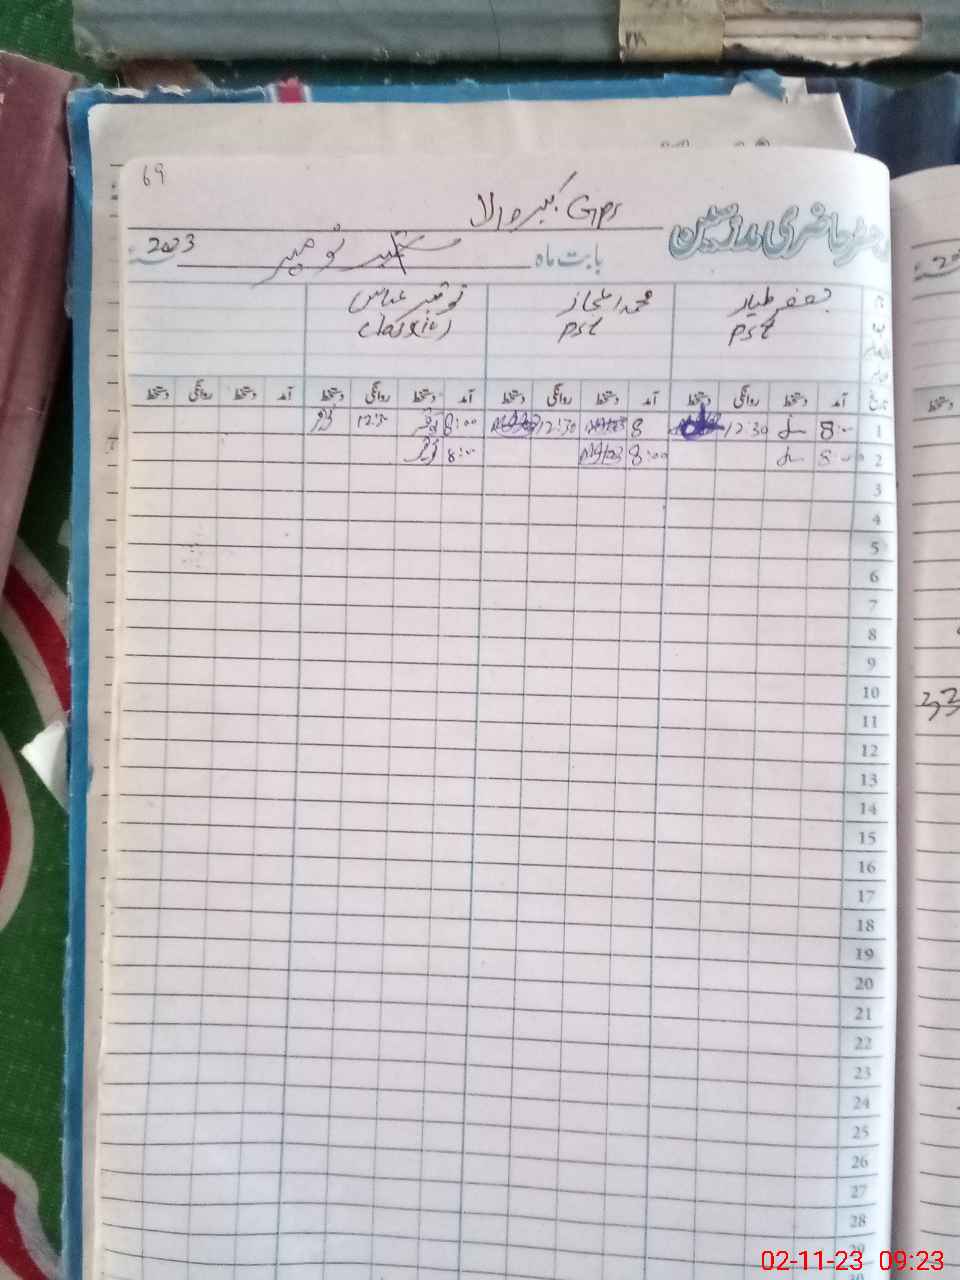 69
GPS کبیر والا
رجسٹر حاضری ملازمین
بابت ماہ نومبر 2023
جعفر طیار محمد اعجاز توقیر عباس
PST PST Class IV
تاریخ آمد دستخط روانگی دستخط آمد دستخط روانگی دستخط آمد دستخط روانگی دستخط آمد دستخط روانگی دستخط
1 8:00 12:30 8 12:30 8:00 12:30
2 8:00 8:00 8:00
3
4
5
6
7
8
9
10
11
12
13
14
15
16
17
18
19
20
21
22
23
24
25
26
27
28
29
30
33
02-11-23 09:23